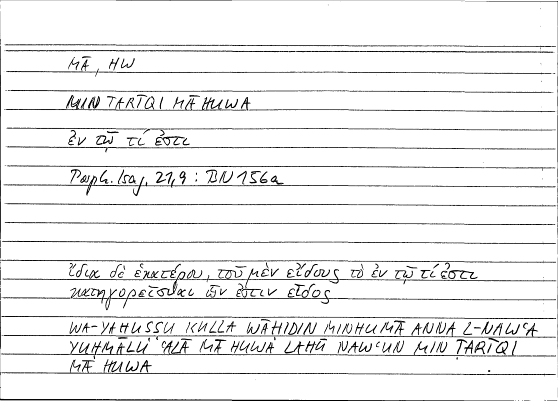 MĀ, HW
MIN ṬARĪQI MĀ HUWA
ἐν τῷ τί ἐστι
Porph. Isag. 21,9 : BN 156a
ἴδια δὲ ἑκατέρου, τοῦ μὲν εἴδους τὸ ἐν τῷ τί ἐστι
κατηγορεῖσθαι ὧν ἐστιν εἶδος
WA-YAḪUṢṢU KULLA WĀḤIDIN MINHUMĀ ANNA L-NAWʿA
YUḤMALU ʿALĀ MĀ HUWA LAHŪ NAWʿUN MIN ṬARĪQI
MĀ HUWA